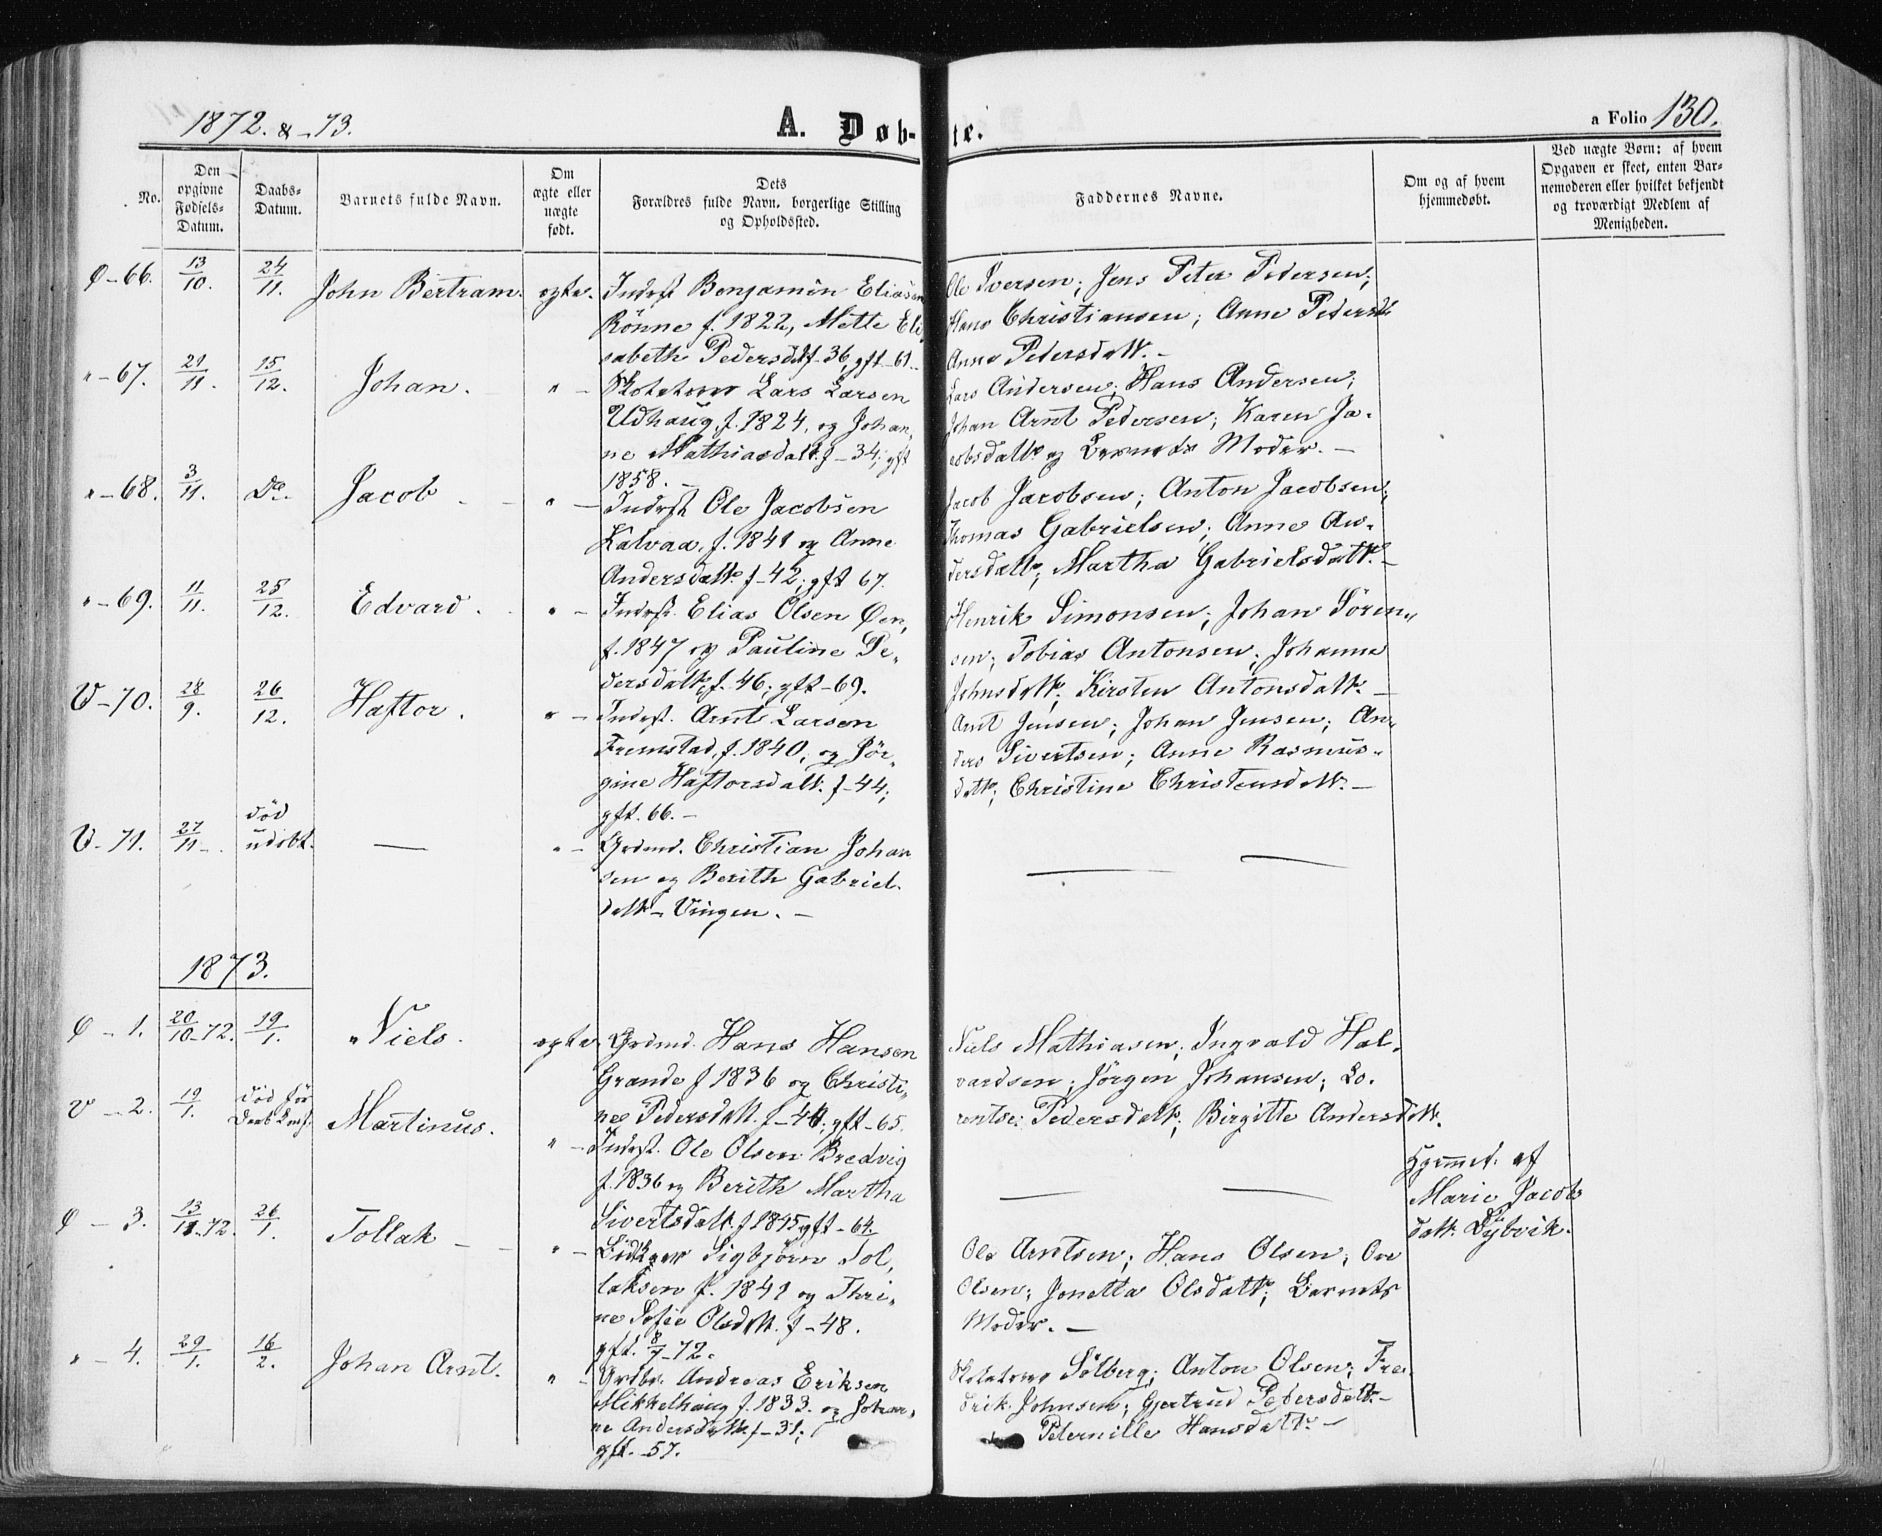 1872. & -73.
A. Døb-
te.
a Folio 130.
No.
Den opgivne Fødsels-Datum.
Daabs-Datum.
Barnets fulde Navn.
Om ægte eller uægte født.
Dets Forældres fulde Navn, borgerlige Stilling og Opholdssted.
Faddernes Navne.
Om og af hvem hjemmedøbt.
Ved uægte Børn: af hvem Opgaven er skeet, enten Barnemoderen eller hvilket bekjendt og troværdigt Medlem af Menigheden.
Ø-66. 13/10. 24/11. John Bertram. egte.
Indrst Benjamin Eliasen
Rönne f. 1822, Mette Eli,
sabeth Pedersdtr f-36, gft-61.
Ole Iversen; Jens Peter Pedersen;
Hans Christiansen; Anne Pedersdtr
Anne Pedersdatt. -
"-67. 21/11. 15/12. Johan. "-
Lars Larsen
Udhaug, f. 1824, og Johan,
ne Mathiasdatt. f-34; gft
1858. -
Lars Andersen; Hans Andersen;
Johan Arnt Pedersen; Karen Ja-
cobsdatt. og Barnets Moder. -
"-68. 3/11. Do. Jacob "-
Indrst Ole Jacobsen
Kalvaa, f. 1841 og Anne
Andersdatt. f-42; gft 67.
Jacob Jacobsen; Anton Jacobsen;
Thomas Gabrielsen; Anne An-
dersdatt; Martha Gabrielsdatt. -
"-69. 11/11. 25/12. Edvard. "-
Indrst. Elias Olsen Øen,
f. 1847 og Pauline Pe,
dersdatt, f-46; gft-69.
Henrik Simonsen; Johan Sören,
sen; Tobias Antonsen; Johanna
Johnsdatt; Kirsten Antonsdatt. -
V-70. 28/9. 26/12. Haftor. "-
Indrst. Arnt Larsen
Fremstad, f. 1840, og Jör,
gine Haftorsdatt. f-44;
gft. 66. -
Arnt Jensen; Johan Jensen; An,
ders Sivertsen; Anne Rasmus-
datt; Christine Christensdatt. -
V-71. 27/11. død udøbt. — "-
Grdmd. Christian Johan
sen og Berith Gabriel.
datt - Vingen. -
1873.
Ø-1. 20/10-72. 19/1. Niels. egte
Grdmd. Hans Hansen
Grande f 1836 og Christi,
ne Pedersdatt. f-44; gft-65.
Niels Mathiasen; Ingvald Hal,
vardsen; Jörgen Johansen; Lo.
rentse Pedersdatt; Birgitte Andersdatt.
V-2. 19/1. død før Martinus. "-
Indrst. Ole Olsen Bredvig
f. 1836 og Berith Martha
Sivertsdatt. f 1845 gft-64.
Hjemmed. af
Marie Jacobs
datt. Dybvik.
Ø-3. 13/11-72. 26/1. Tollak - "-
Sigbjörn Tol,
laksen f. 1841 og Thri,
ne Sofie Olsdtt. f-48.
gft. 8/7-72.
Ole Arntsen; Hans Olsen; Ove
Olsen; Jonetta Olsdatt; Barnets
Moder. -
"-4. 29/1. 16/2. Johan Arnt. "-
Grdbr. Andreas Eriksen
Mikkelhaug f. 1833. og Johan,
ne Andersdatt f-31;
gft.-57.
Solberg; Anton Olsen; Fre,
drik Johnsen; Gjertrud Pedersdatt. -
Peternille Hansdatt. -